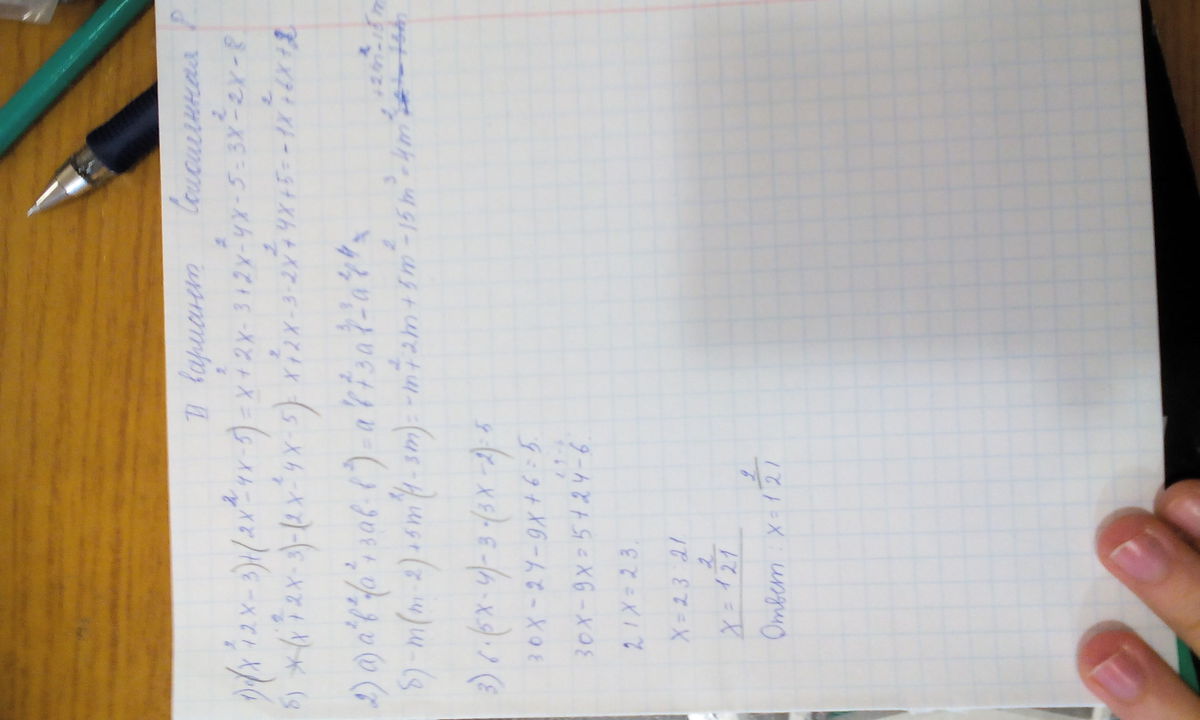 II вариант
1) а) (x² + 2x - 3) + (2x² - 4x - 5) = x² + 2x - 3 + 2x² - 4x - 5 = 3x² - 2x - 8
б) (x² + 2x - 3) - (2x² 4x - 5) = x² + 2x - 3 - 2x² + 4x + 5 = -1x² + 6x + 2
2) а) a²b² (a² + 3ab - b²) = a⁴b² + 3a³b³ - a²b⁴
б) -m(m - 2) + 5m²(1 - 3m) = -m² + 2m + 5m² - 15m³ = 4m² + 2m - 15m
3) 6 · (5x - 4) - 3 · (3x - 2) = 5
30x - 24 - 9x + 6 = 5.
30x - 9x = 5 + 24 - 6
21x = 23.
x = 23 21
x = 1 2/21
Ответ: x = 1 2/21